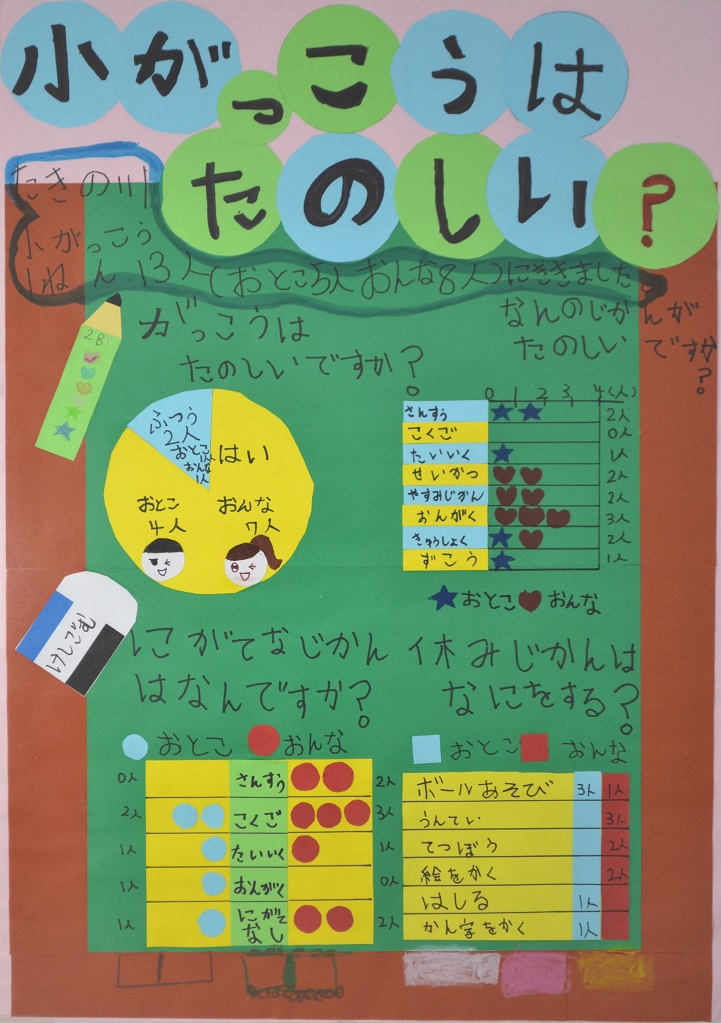 小がっこうは
たのしい?
たきの川
小がっこう
1ねん13人(おとこ5人おんな8人)にききました。
がっこうは
たのしいですか?
2B
ふつう
2人
おとこ
1人
おんな
1人
はい
おとこ
4人
おんな
7人
なんのじかんが
たのしいですか?
0 1 2 3 4(人)
さんすう 2人
こくご 0人
たいいく 1人
せいかつ 2人
やすみじかん 2人
おんがく 3人
きゅうしょく 2人
ずこう 1人
おとこ おんな
けしごむ
にがてなじかん
はなんですか?
おとこ おんな
0人 さんすう 2人
2人 こくご 3人
1人 たいいく 1人
1人 おんがく 0人
1人 にがて
なし 2人
休みじかんは
なにをする?
おとこ おんな
ボールあそび 3人 1人
うんてい 3人
てつぼう 2人
絵をかく 2人
はしる 1人
かん字をかく 1人